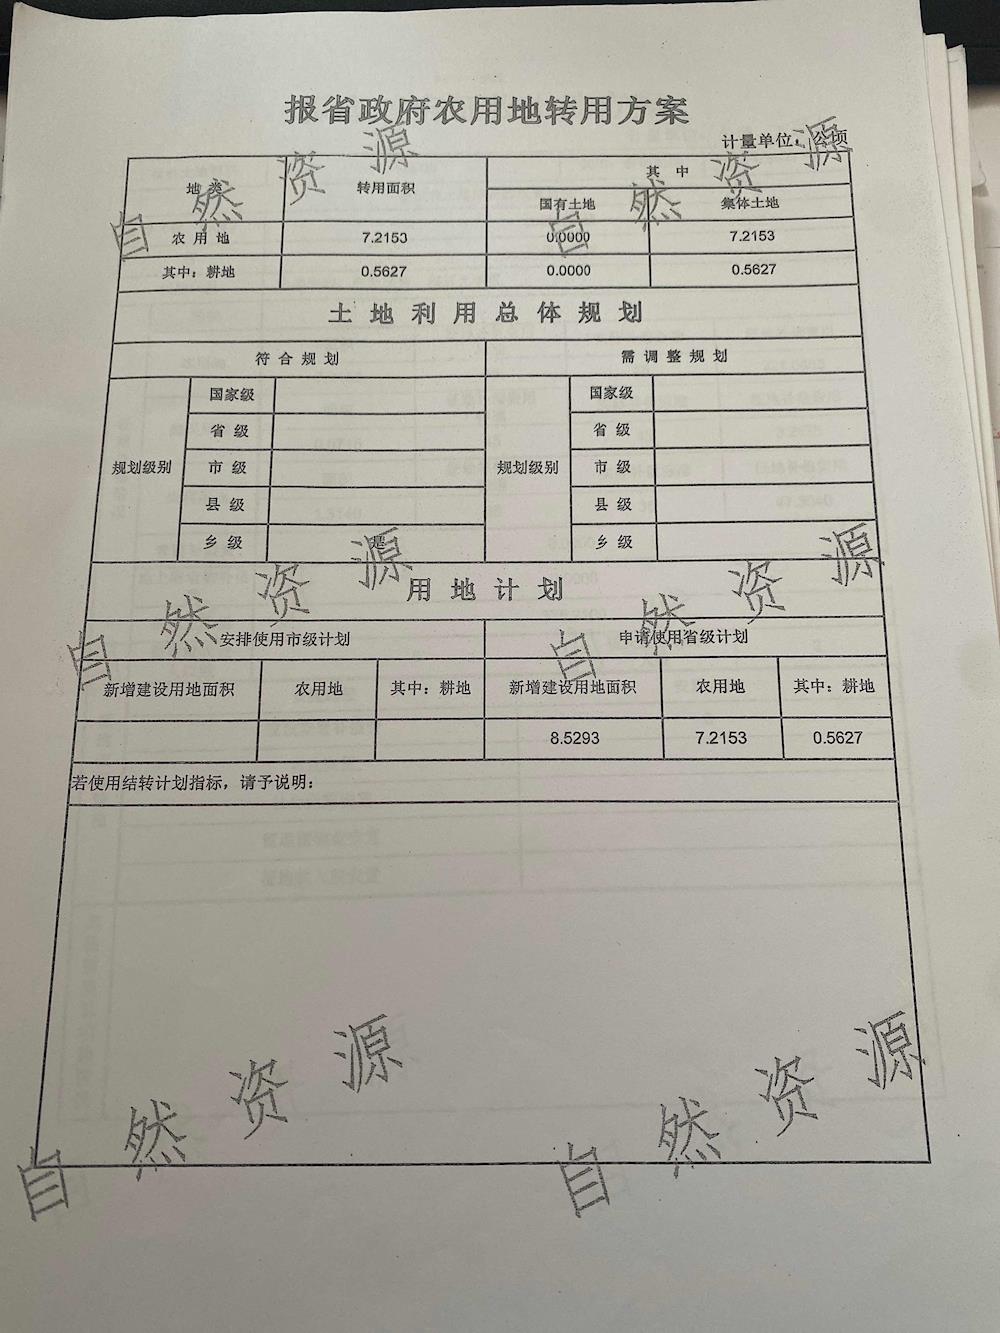 报省政府农用地转用方案
计量单位：公顷
地 类 转用面积 其 中
国有土地 集体土地
农 用 地 7.2153 0.0000 7.2153
其中：耕地 0.5627 0.0000 0.5627
土 地 利 用 总 体 规 划
符 合 规 划 需 调 整 规 划
规划级别 国家级 规划级别 国家级
省 级 省 级
市 级 市 级
县 级 县 级
乡 级 是 乡 级
用 地 计 划
安排使用市级计划 申请使用省级计划
新增建设用地面积 农用地 其中：耕地 新增建设用地面积 农用地 其中：耕地
8.5293 7.2153 0.5627
若使用结转计划指标，请予说明：
自然资源
自然资源
自然资源
自然资源
自然资源
自然资源